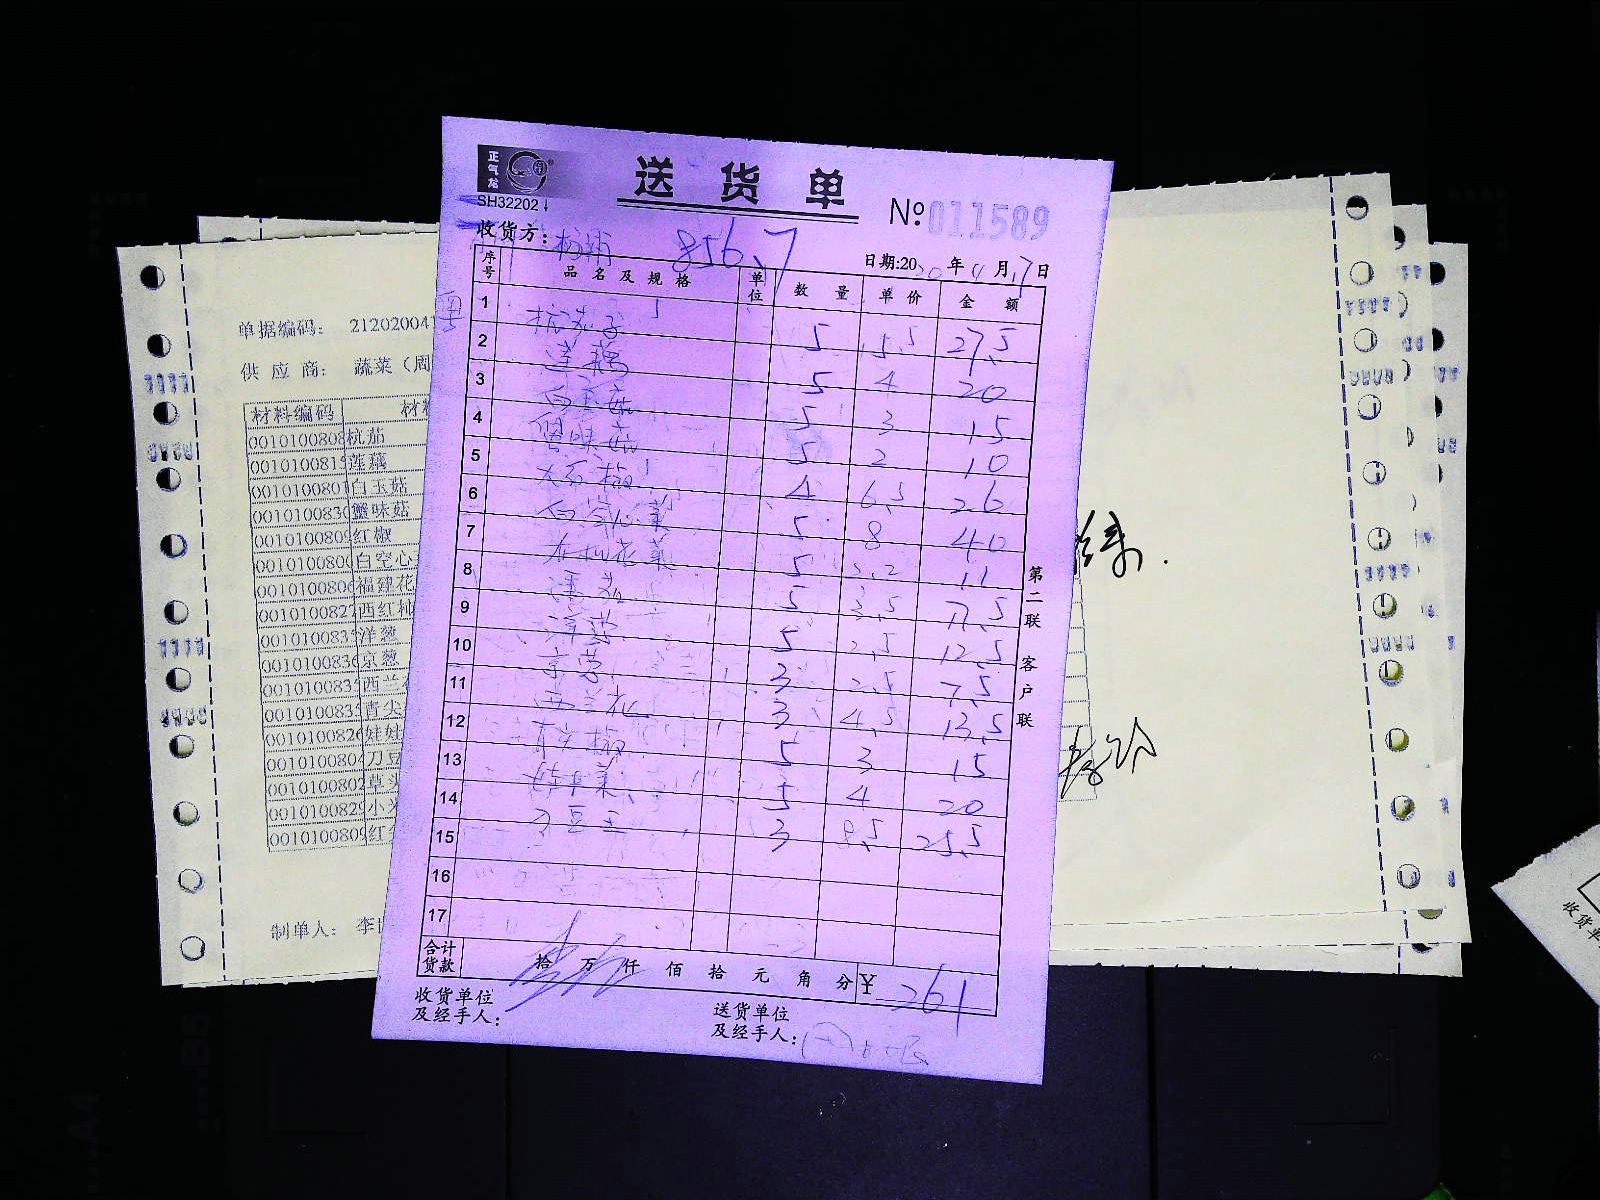 正气龙
送货单
SH32202
№011589
收货方: 杨浦 856.7
日期:2020年4月17日
序号 品名及规格 单位 数量 单价 金额
1 杭茄子 5 5.5 27.5
2 莲藕 5 4 20
3 白玉菇 5 3 15
4 蟹味菇 5 2 10
5 大红椒 4 6.5 26
6 白空心菜 5 8 40
7 花菜 5 2.2 11
8 5 3.5 17.5
9 洋葱 5 2.5 12.5
10 京葱 3 2.5 7.5
11 西兰花 3 4.5 13.5
12 青尖椒 5 3 15
13 娃娃菜 5 4 20
14 刀豆 3 8.5 25.5
15
16
17
合计货款 拾 万 仟 佰 拾 元 角 分 ¥ 261
收货单位及经手人:
送货单位及经手人:
第二联 客户联
单据编码: 21202004
供应商: 蔬菜(周
材料编码 材
0010100808 杭茄
001010081 莲藕
001010080 白玉菇
001010083 蟹味菇
0010100809 红椒
001010080 白空心
0010100806 福建花
001010082 西红柿
001010083 洋葱
0010100836 京葱
001010083 西兰
001010083 青尖
0010100826 娃娃
0010100804 刀豆
0010100802 草头
0010100829 小米
0010100809 红
制单人: 李
收货单